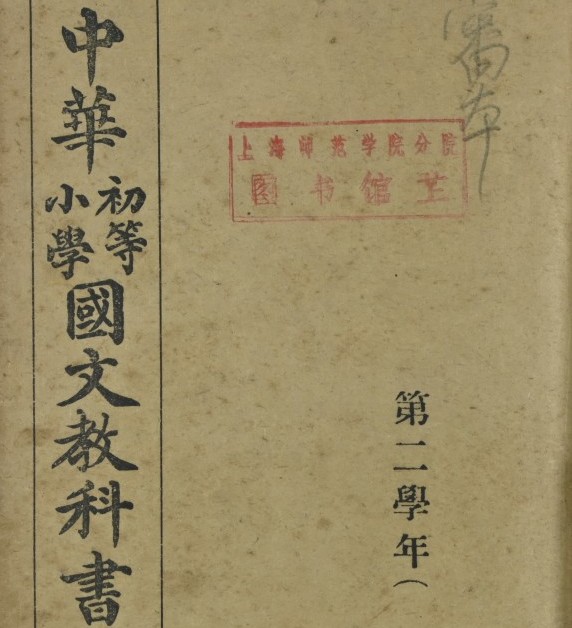 中華初等小學國文教科書
上海师范学院分院
图书馆
第二學年（